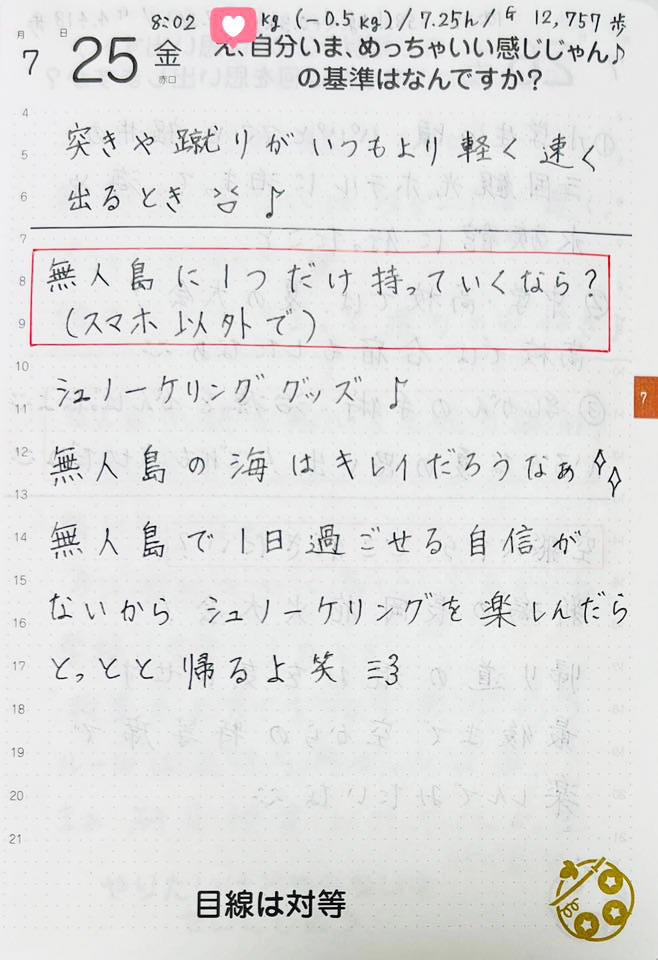 8:02 kg (-0.5kg) / 7.25h / 12,757 歩
月 日
7 25 金
赤口
え、自分いま、めっちゃいい感じじゃん♪
の基準はなんですか?
4
突きや蹴りがいつもより軽く速く
5
6
出るとき ♪
7
8
無人島に1つだけ持っていくなら?
9
(スマホ以外で)
10
シュノーケリンググッズ ♪
11
7
12
無人島の海はキレイだろうなぁ
13
14
無人島で1日過ごせる自信が
15
ないから シュノーケリングを楽しんだら
16
17
とっとと帰るよ笑
18
19
20
21
目線は対等